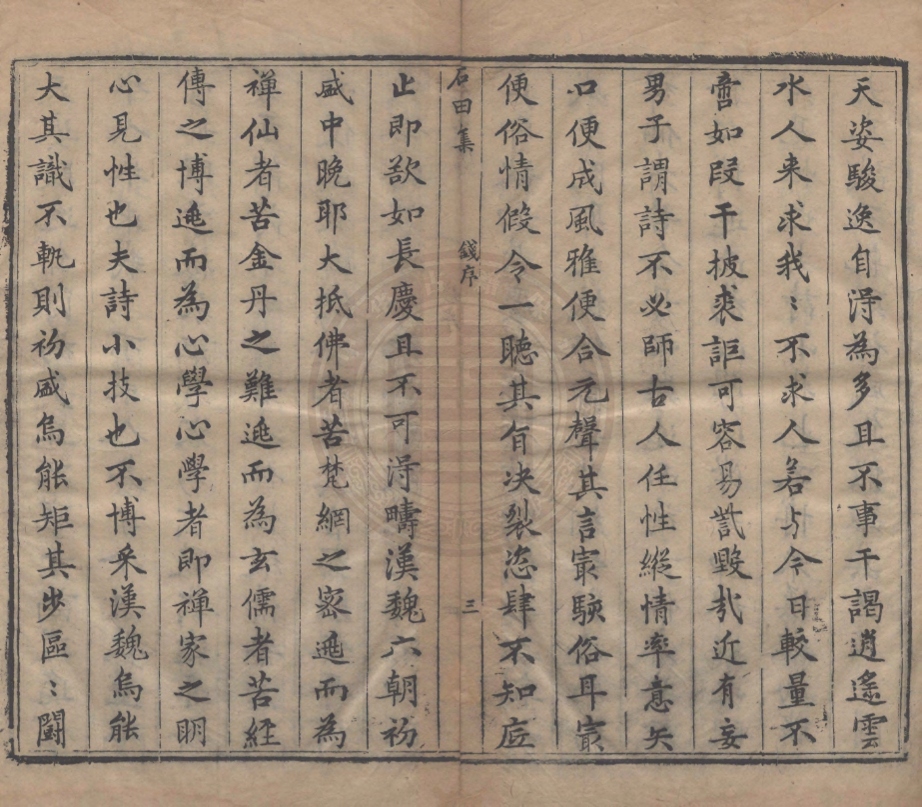 天姿駿逸自淂為多且不事干謁逍遙雲
水人来求我〻不求人若与今日較量不
啻如叚干披裘詎可容易訿毀㢤近有妄
男子謂詩不必師古人任性縱情率意矢
口便成風雅便合元聲其言㝡駭俗耳㝡
便俗情假令一聽其自决裂恣肆不知底
石田集
錢序
三
止即欲如長慶且不可淂疇漢魏六朝初
盛中晚耶大抵佛者苦梵網之宻逃而為
禅仙者苦金丹之難逃而為玄儒者苦経
傳之博逃而為心學心學者即禅家之明
心見性也夫詩小技也不博采漢魏烏能
大其識不軌則初盛烏能矩其步區〻鬪